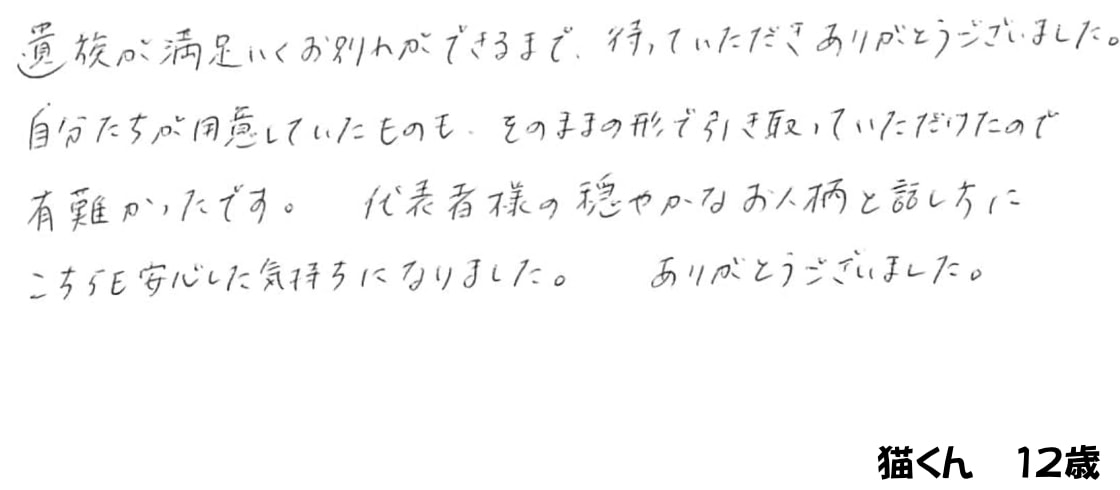 遺族が満足いくお別れができるまで、待っていただきありがとうございました。
自分たちが用意していたものも、そのままの形で引き取っていただけたので
有難かったです。 代表者様の穏やかなお人柄と話し方に
こちらも安心した気持ちになりました。 ありがとうございました。
猫くん 12歳